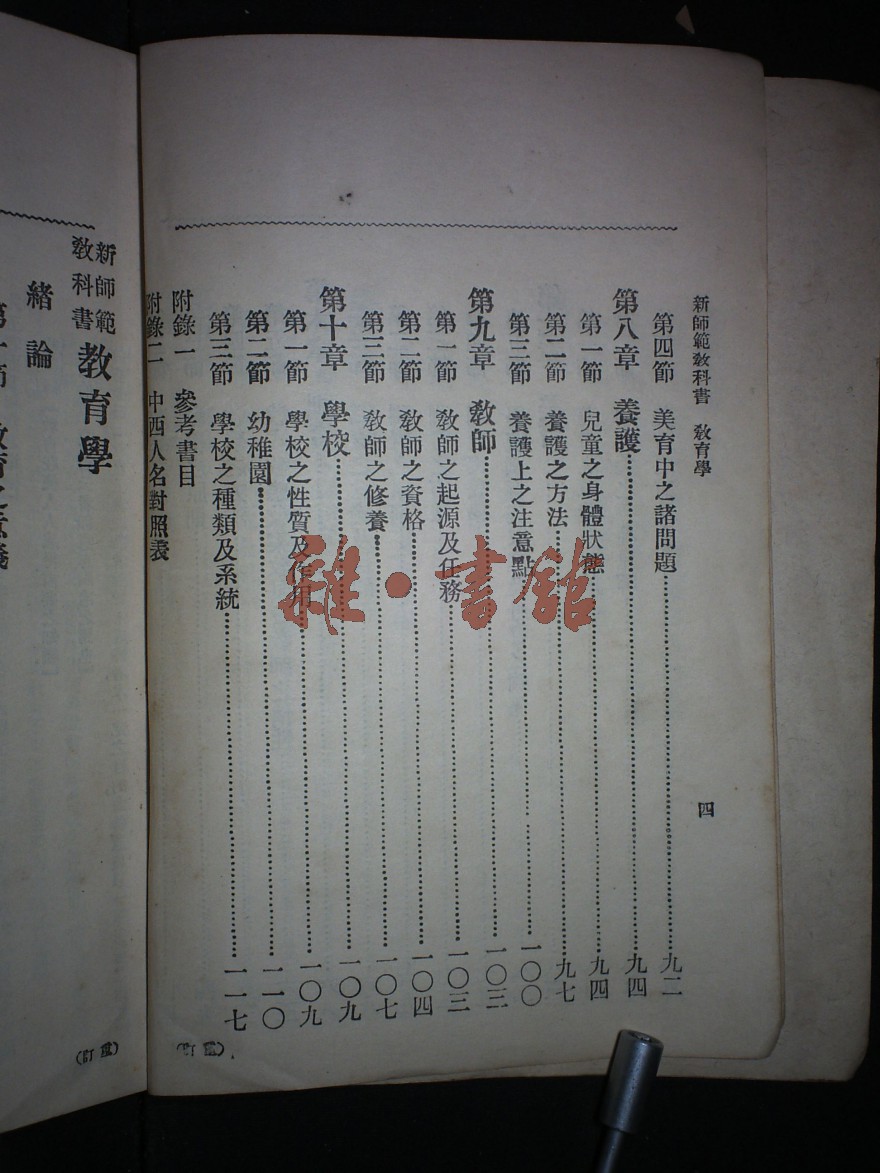 新師範教科書　教育學
四
第四節　美育中之諸問題……九二
第八章　養護……九四
第一節　兒童之身體狀態……九四
第二節　養護之方法……九七
第三節　養護上之注意點……一〇〇
第九章　教師……一〇三
第一節　教師之起源及任務……一〇三
第二節　教師之資格……一〇四
第三節　教師之修養……一〇七
第十章　學校……一〇九
第一節　學校之性質及作用……一〇九
第二節　幼稚園……一一〇
第三節　學校之種類及系統……一一七
附錄一　參考書目
附錄二　中西人名對照表
(重訂)
新師範教科書　教育學
緒論
第一節　教育之意義
(重訂)
雜·書館